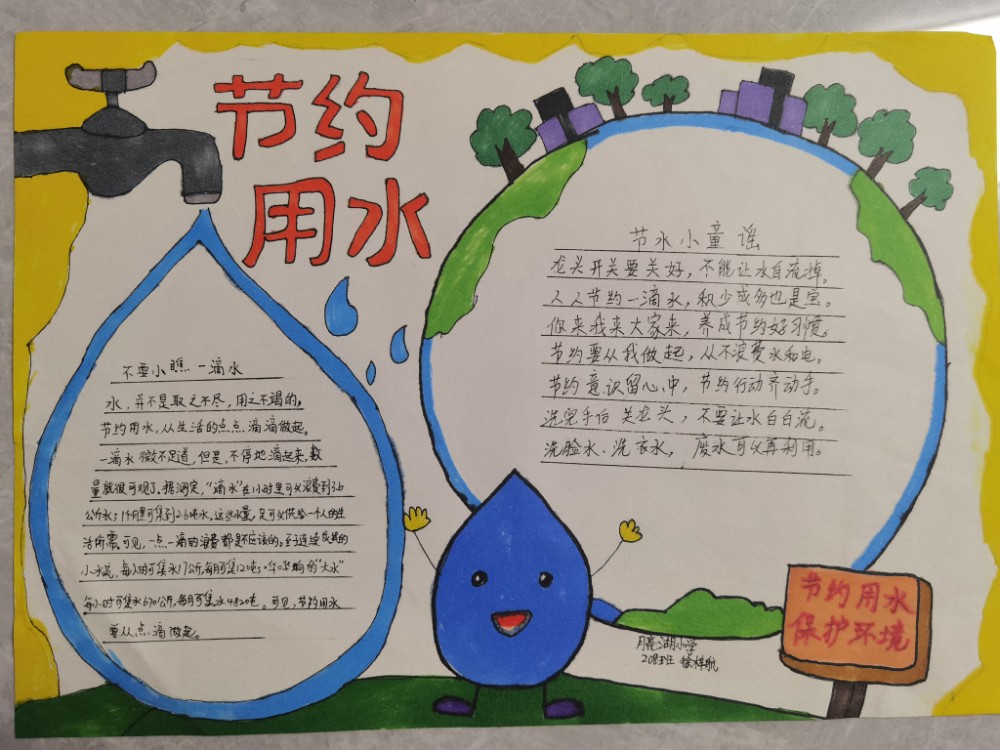 节约
用水
不要小瞧一滴水
水，并不是取之不尽，用之不竭的。
节约用水，从生活的点点滴滴做起。
一滴水微不足道，但是，不停地滴起来，数
量就很可观了。据测定，"滴水"在1小时里可以浪费到3.6
公斤水；1个月里可集到2.6吨水。这些水量，足可以供给一个人的生
活所需。可见，一点一滴的浪费都是不应该的。至于连续成线的
小水流，每小时可集水17公斤，每月可集12吨；
的"大水"
每小时可集水670公斤，每月可集水482吨。可见，节约用水
要从点滴做起。
节水小童谣
龙头开关要关好，不能让水自流掉。
人人节约一滴水，积少成多也是宝。
你来我来大家来，养成节约好习惯。
节约要从我做起，从不浪费水和电。
节约意识留心中，节约行动齐动手。
洗完手后关龙头，不要让水白白流。
洗脸水、洗衣水，废水可以再利用。
节约用水
保护环境
月亮湖小学
208班 徐梓航